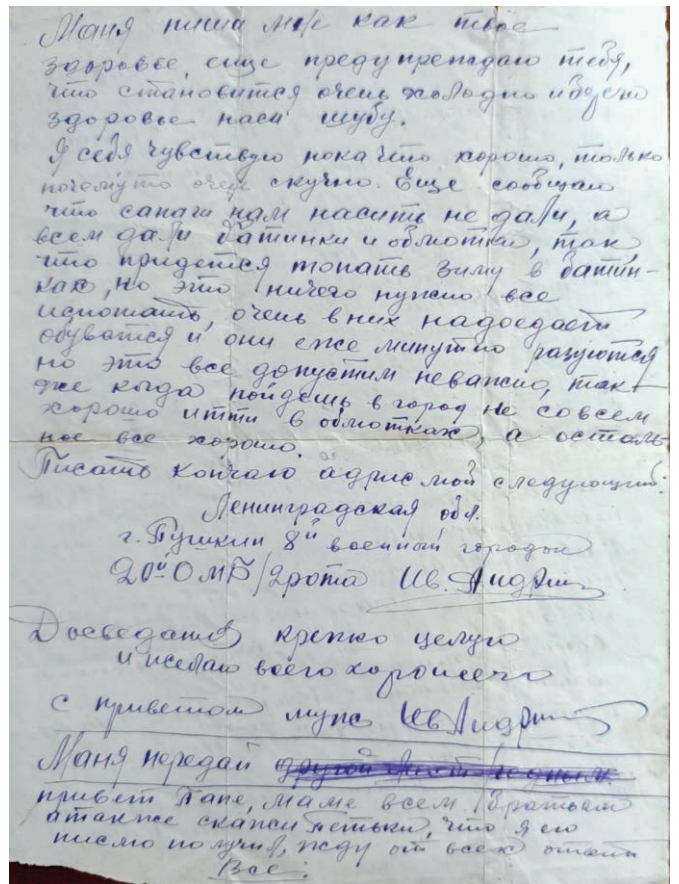 Маня пиши мне как твое
здоровье, еще предупреждаю тебя,
что становится очень холодно и
здоровье наси шубу.
Я себя чувствую пока что хорошо, только
почемуто очень скучно. Еще сообщаю
что сапаги нам насить не дали, а
всем дали батинки и обмотки, так
что придется топать зиму в батин-
ках, но это ничего нужно все
испытать, очень в них надоедает
обуватся и они еже минутно разуются
но это все допустим неважно, так
же когда пойдешь в город не совсем
хорошо итти в обмотках, а осталь-
ное все хорошо.
Писать кончаю адрис мой следующий:
Ленинградская обл.
г. Пушкин 8й военный городок
20й ОМБ/2 рота Ив. Андр
Досведания крепко целую
и желаю всего хорошего
с приветом муж Ив Андр
Маня передай другой
привет Папе, Маме всем братьям
атакже скажи Петьки, что я его
писмо получил, жду от всех ответа
Все: